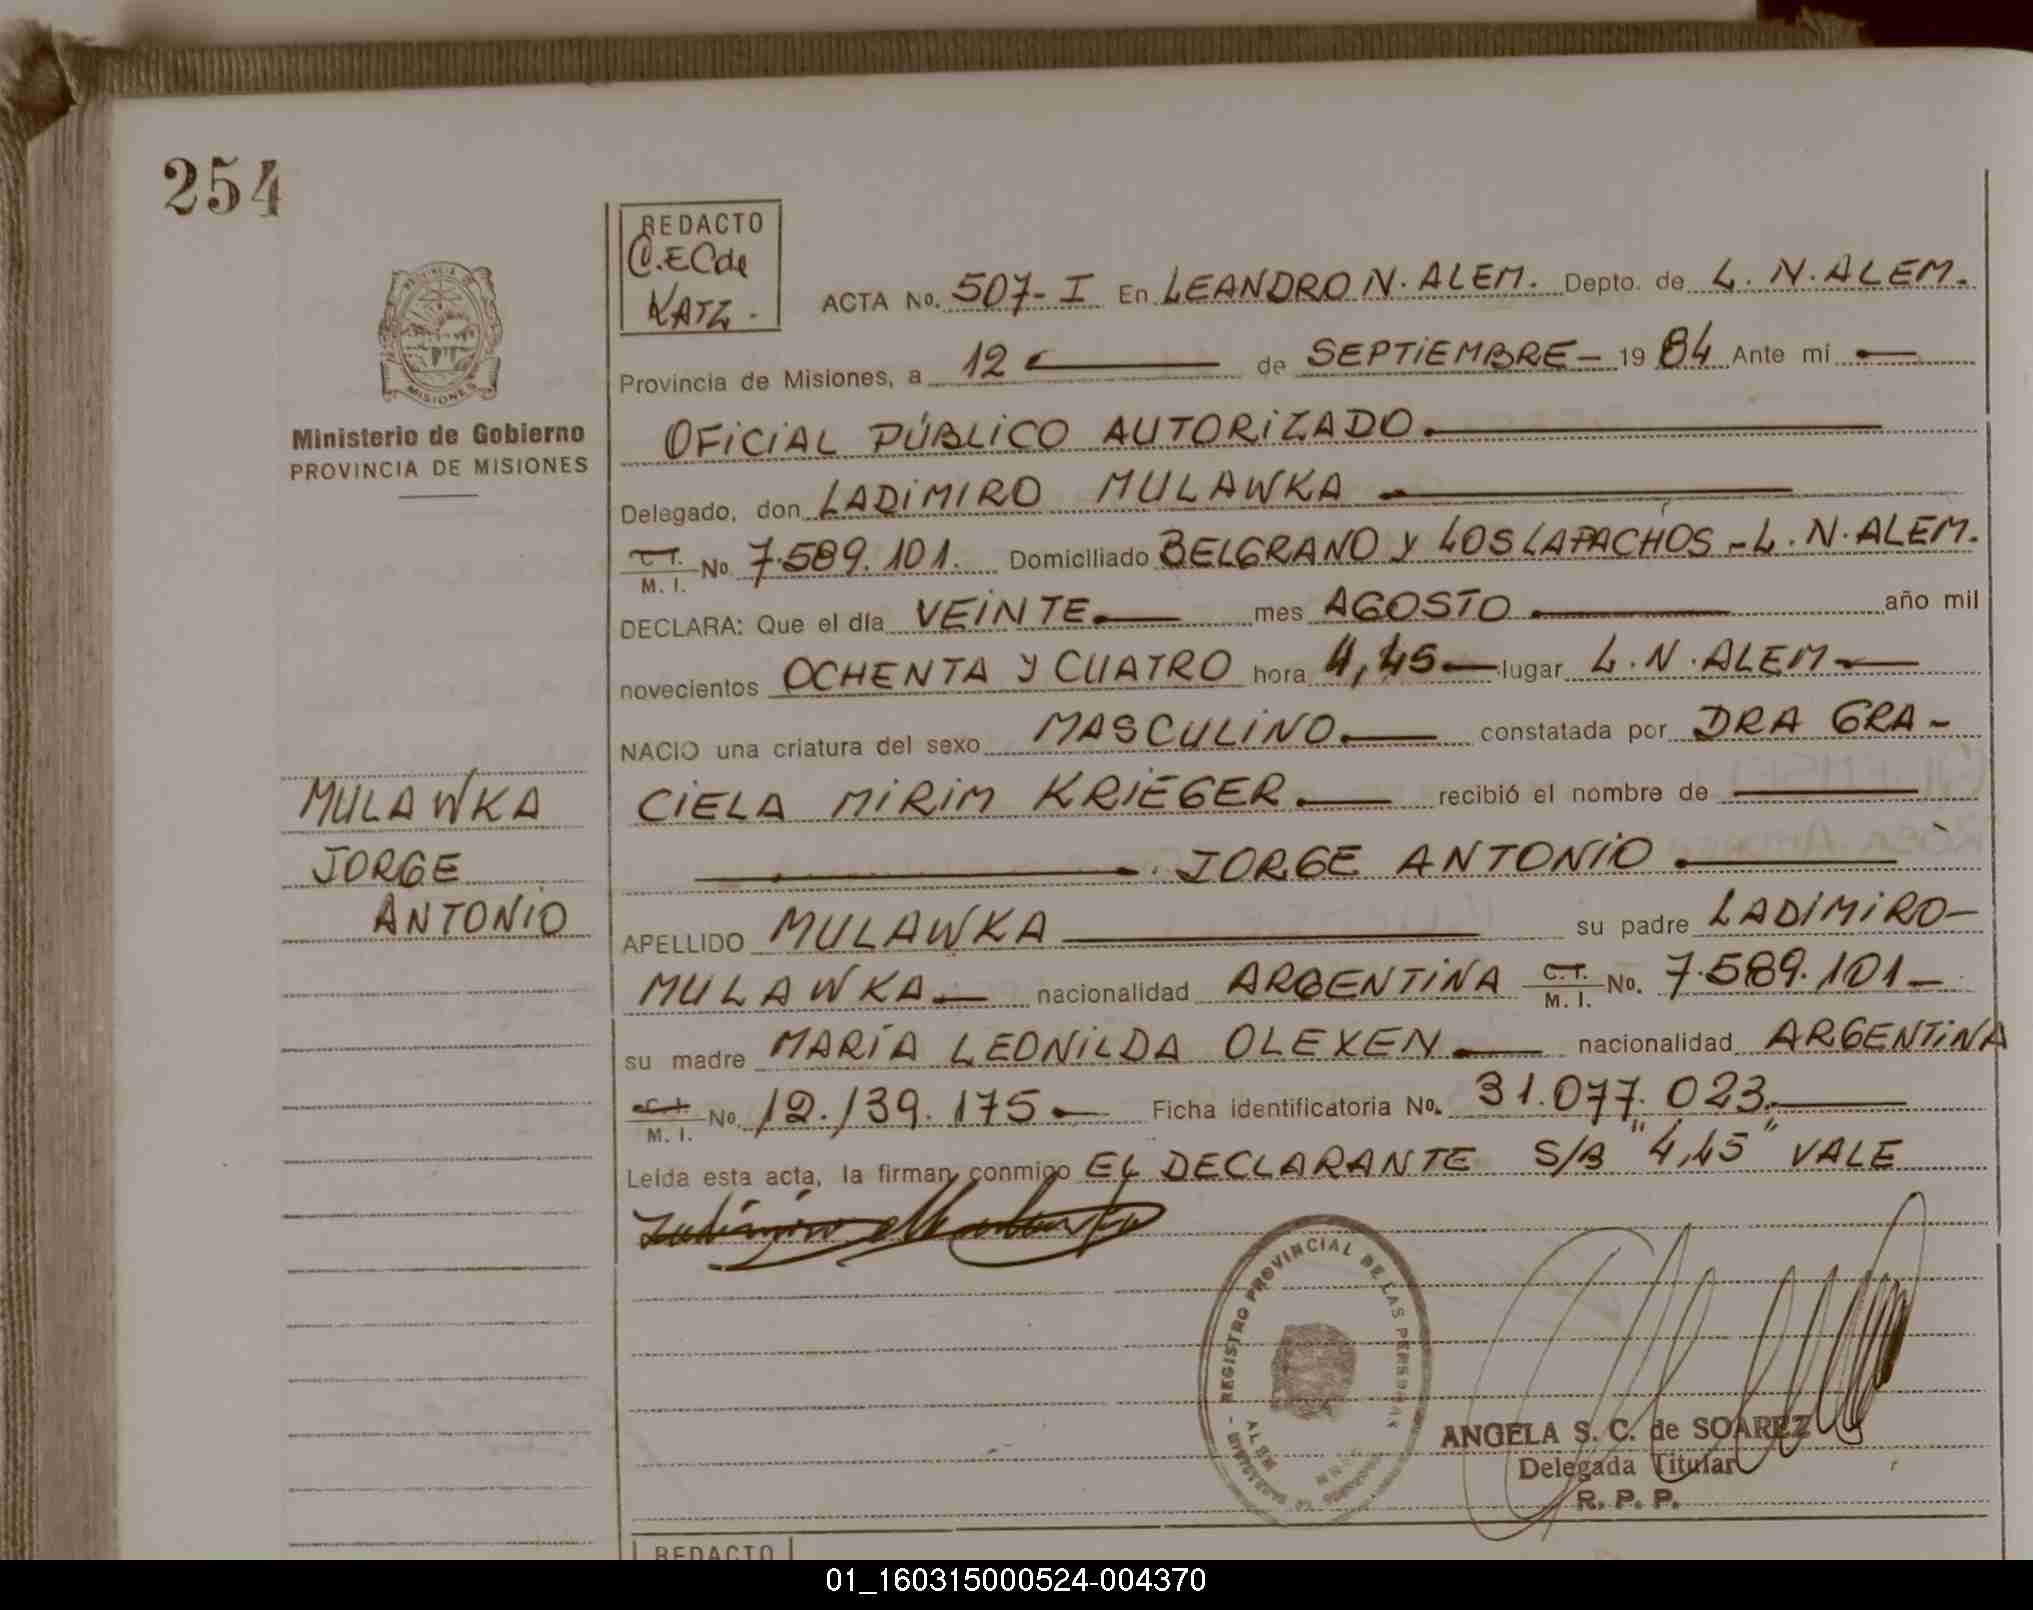 254
REDACTO
C.ECde
KATZ.
PROVINCIA DE
MISIONES
Ministerio de Gobierno
PROVINCIA DE MISIONES
ACTA No. 507-I En LEANDRO N. ALEM. Depto. de L. N. ALEM.
Provincia de Misiones, a 12 de SEPTIEMBRE - 19 84 Ante mí
OFICIAL PÚBLICO AUTORIZADO
Delegado, don LADIMIRO MULAWKA
C. I. / M. I. No. 7.589.101. Domiciliado BELGRANO Y LOS LAPACHOS - L. N. ALEM.
DECLARA: Que el día VEINTE mes AGOSTO año mil
novecientos OCHENTA Y CUATRO hora 4,45 lugar L. N. ALEM
NACIO una criatura del sexo MASCULINO constatada por DRA GRA-
CIELA MIRIM KRIEGER recibió el nombre de
JORGE ANTONIO
APELLIDO MULAWKA su padre LADIMIRO-
MULAWKA nacionalidad ARGENTINA C. I. / M. I. No. 7.589.101-
su madre MARÍA LEONILDA OLEXEN nacionalidad ARGENTINA
C. I. / M. I. No. 12.139.175 Ficha identificatoria No. 31.077.023.
Leída esta acta, la firman conmigo EL DECLARANTE S/B "4,45" VALE
MULAWKA
JORGE
ANTONIO
REGISTRO PROVINCIAL DE LAS PERSONAS
ANGELA S. C. de SOAREZ
Delegada Titular
R. P. P.
REDACTO
01_160315000524-004370